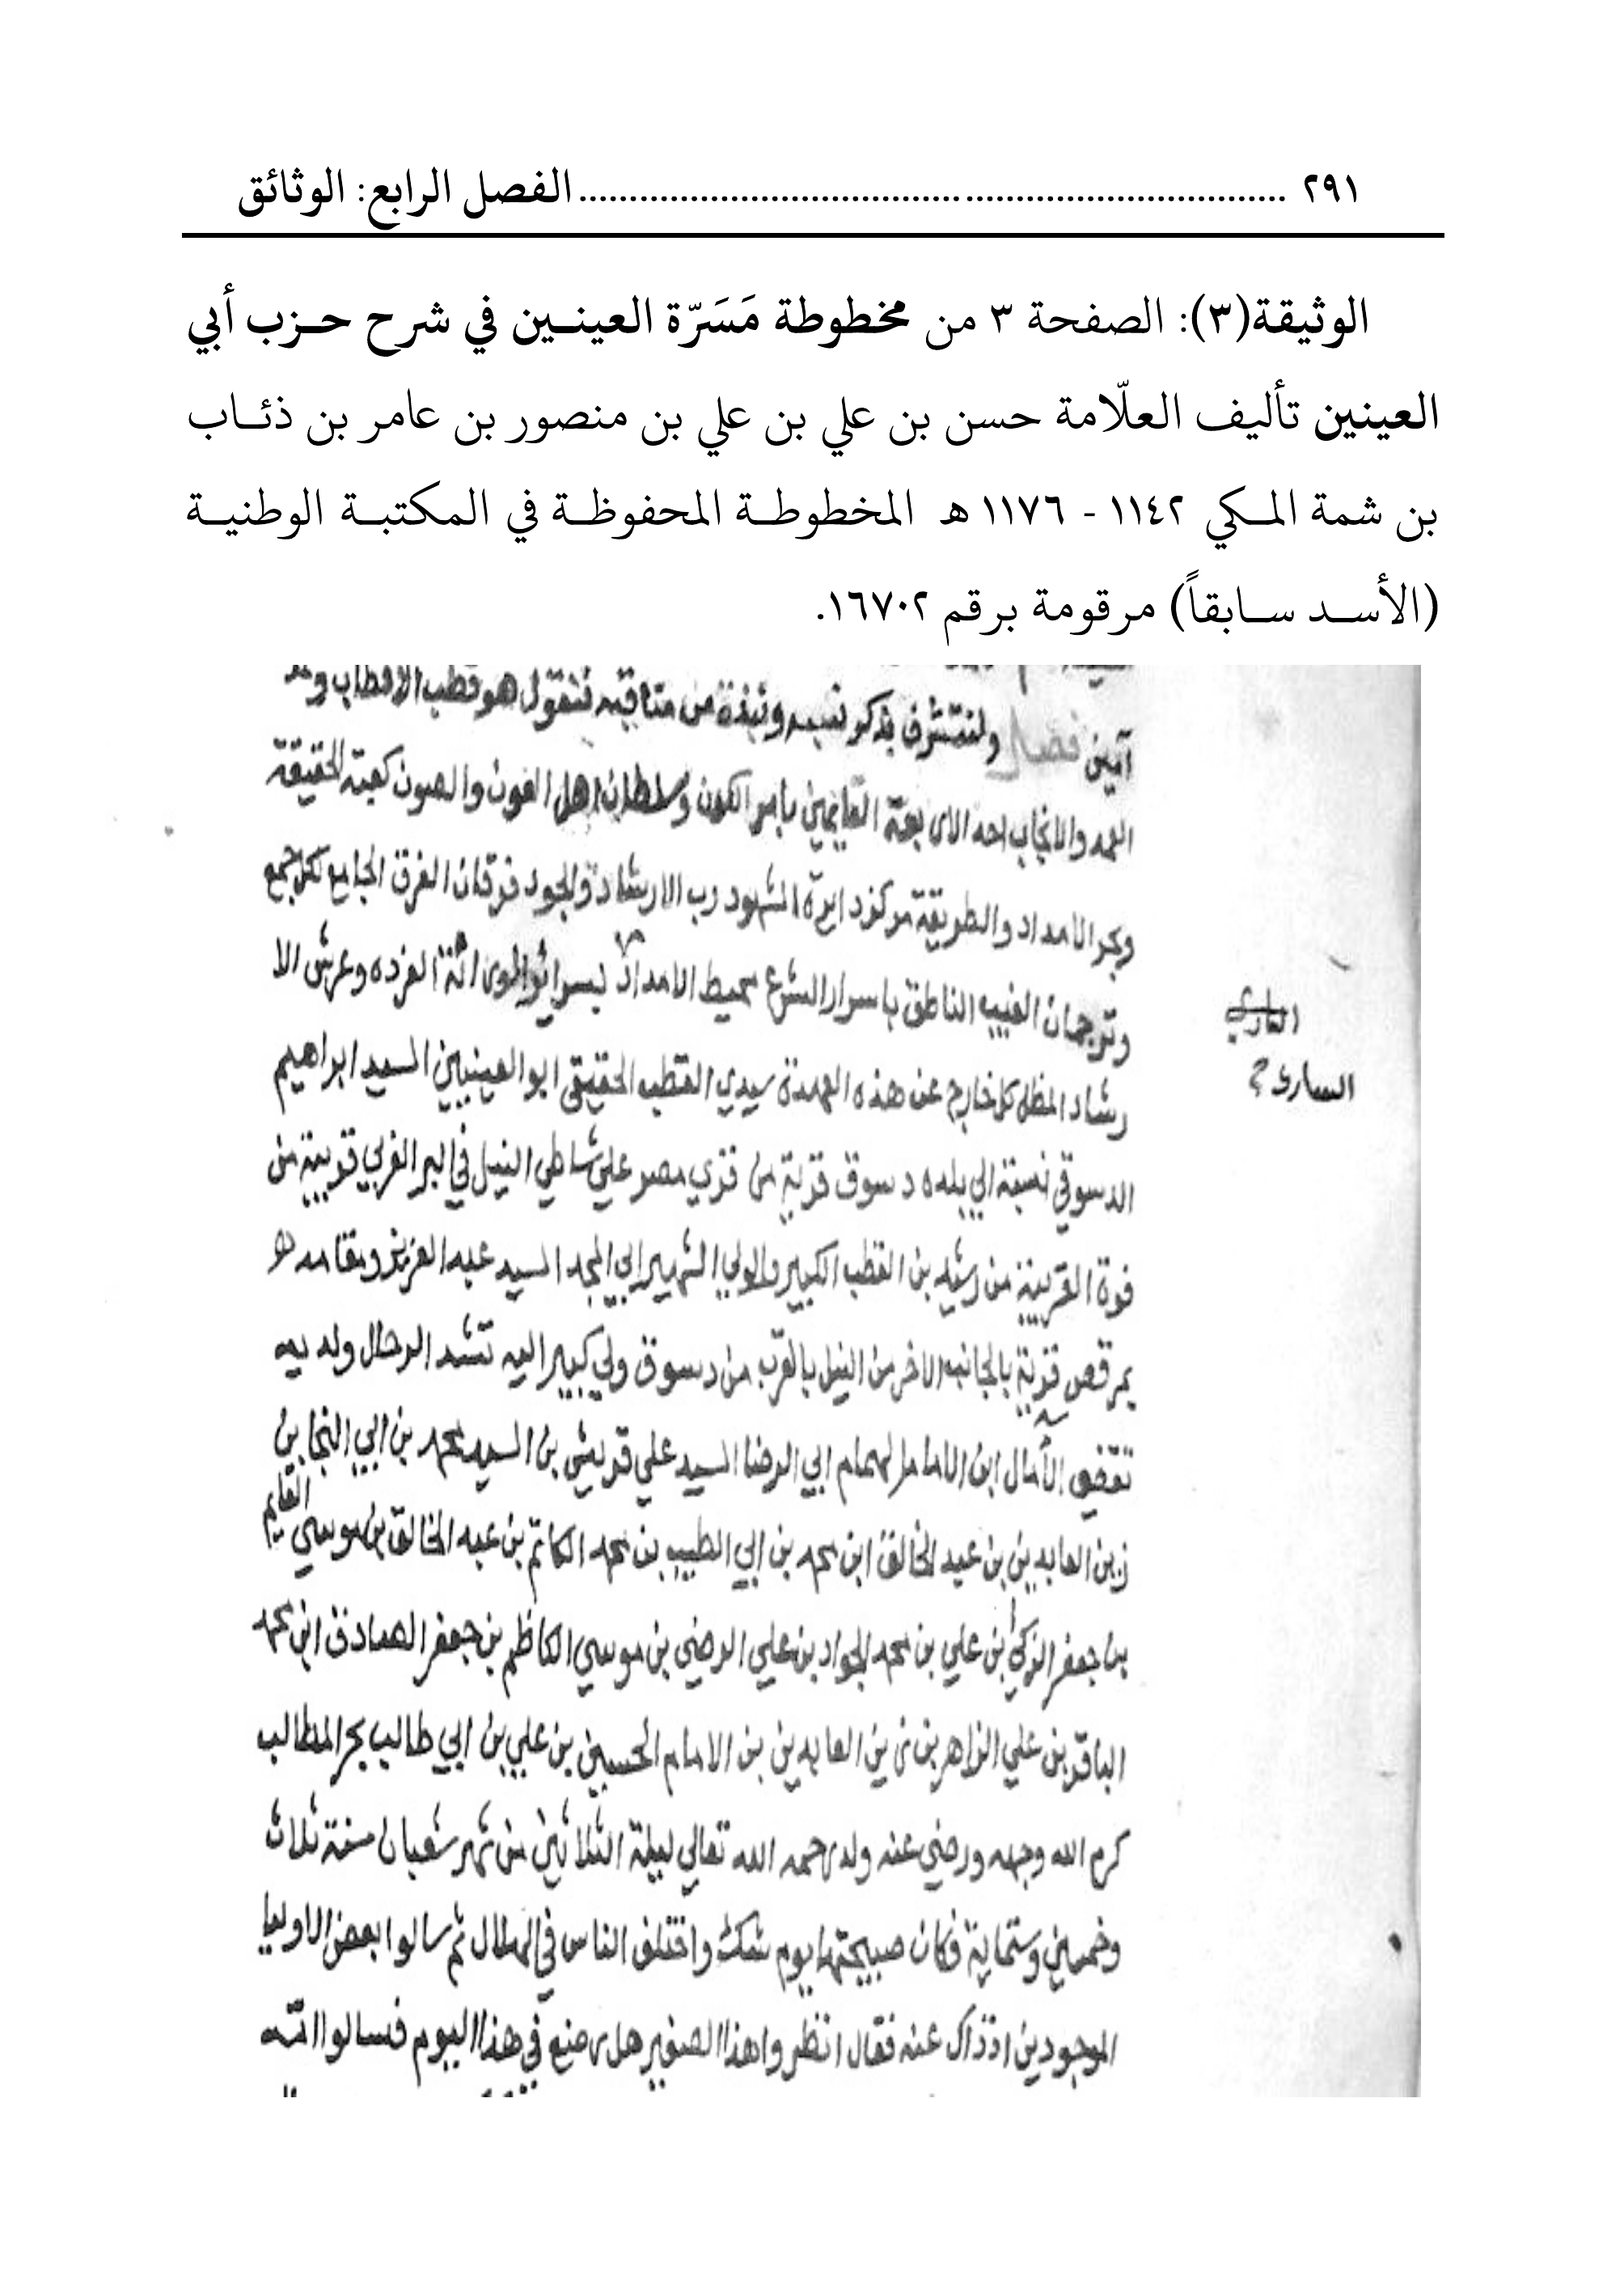 ٢٩١ ........................................................................ الفصل الرابع: الوثائق
الوثيقة(٣): الصفحة ٣ من مخطوطة مَسَرّة العينين في شرح حزب أبي
العينين تأليف العلّامة حسن بن علي بن علي بن منصور بن عامر بن ذئاب
بن شمة المكي ١١٤٢ - ١١٧٦ هـ المخطوطة المحفوظة في المكتبة الوطنية
(الأسد سابقاً) مرقومة برقم ١٦٧٠٢.
آمين فصل ولنتشرف بذكر نسبه ونبذة من مناقبه فنقول هو قطب الاقطاب
والانجاب احد الاربعة القايمين بامر الكون وسلطان اهل الغوث والصون كعبة الحقيقة
وبحر الامداد والطريقة مركز دايرة الشهود رب الارشاد والجود فرقان الفرق الجامع لكل جمع
وترجمان الغيب الناطق باسرار الشرع محيط الامداد وعرش الا
رشاد المظل كل خارج عن هذه العهدة سيدي القطب الحقيقي ابو العينين السيد ابراهيم
الدسوقي نسبة الي بلده دسوق قرية من قري مصر علي شاطي النيل في البر الغربي قريبة من
فوة القريبة من رشيد بن القطب الكبير والولي الشهير ابي المجد السيد عبد العزيز ومقامه
بمرقص قرية بالجانب الاخر من النيل بالقرب من دسوق ولي كبير اليه تشد الرحال ولديه
تقضي الآمال ابن الامام الهمام ابي الرضا السيد علي قريش بن السيد محمد بن ابي النجا بن
زين العابدين بن عبد الخالق ابن محمد بن ابي الطيب بن محمد الكاتم بن عبد الخالق بن موسي القايم
بن جعفر الزكي بن علي بن محمد الجواد بن علي الرضي بن موسي الكاظم بن جعفر الصادق ابن محمد
الباقر بن علي الزاهر بن زين العابدين بن الامام الحسين بن علي بن ابي طالب بحر المطالب
كرم الله وجهه ورضي عنه ولد رحمه الله تعالي ليلة الثلاثين من شهر شعبان سنة ثلاث
وخمسين وستماية فكان صبيحتها يوم شك واختلف الناس في الهلال ثم سالوا بعض الاوليا
الموجودين اذ ذاك عنه فقال انظروا هذا الصغير هل رضع في هذا اليوم فسالوا امه
الساري ؟